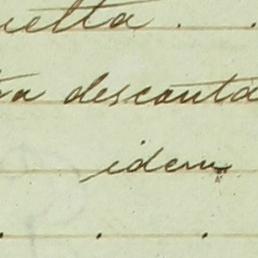 uelta . .
a descanta
idem
. . .